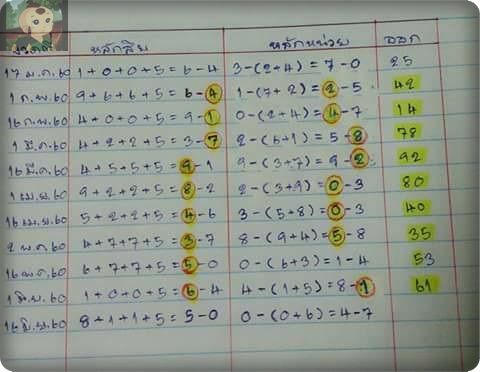 งวดที่ หลักสิบ หลักหน่วย ออก
17 ม.ค.60 1+0+0+5=6-4 3-(2+4)=7-0 25
1 ก.พ.60 9+6+6+5=6-4 1-(7+2)=2-5 42
16 ก.พ.60 4+0+0+5=9-1 0-(2+4)=4-7 14
1 มี.ค.60 4+2+2+5=3-7 2-(6+1)=5-8 78
16 มี.ค.60 4+5+5+5=9-1 9-(3+7)=9-2 92
1 เม.ย.60 9+2+2+5=8-2 2-(3+9)=0-3 80
16 เม.ย.60 5+2+2+5=4-6 3-(5+8)=0-3 40
2 พ.ค.60 4+7+7+5=3-7 8-(9+4)=5-8 35
16 พ.ค.60 6+7+7+5=5-0 0-(6+3)=1-4 53
1 มิ.ย.60 1+0+0+5=6-4 4-(1+5)=8-1 61
16 มิ.ย.60 8+1+1+5=5-0 0-(0+6)=4-7